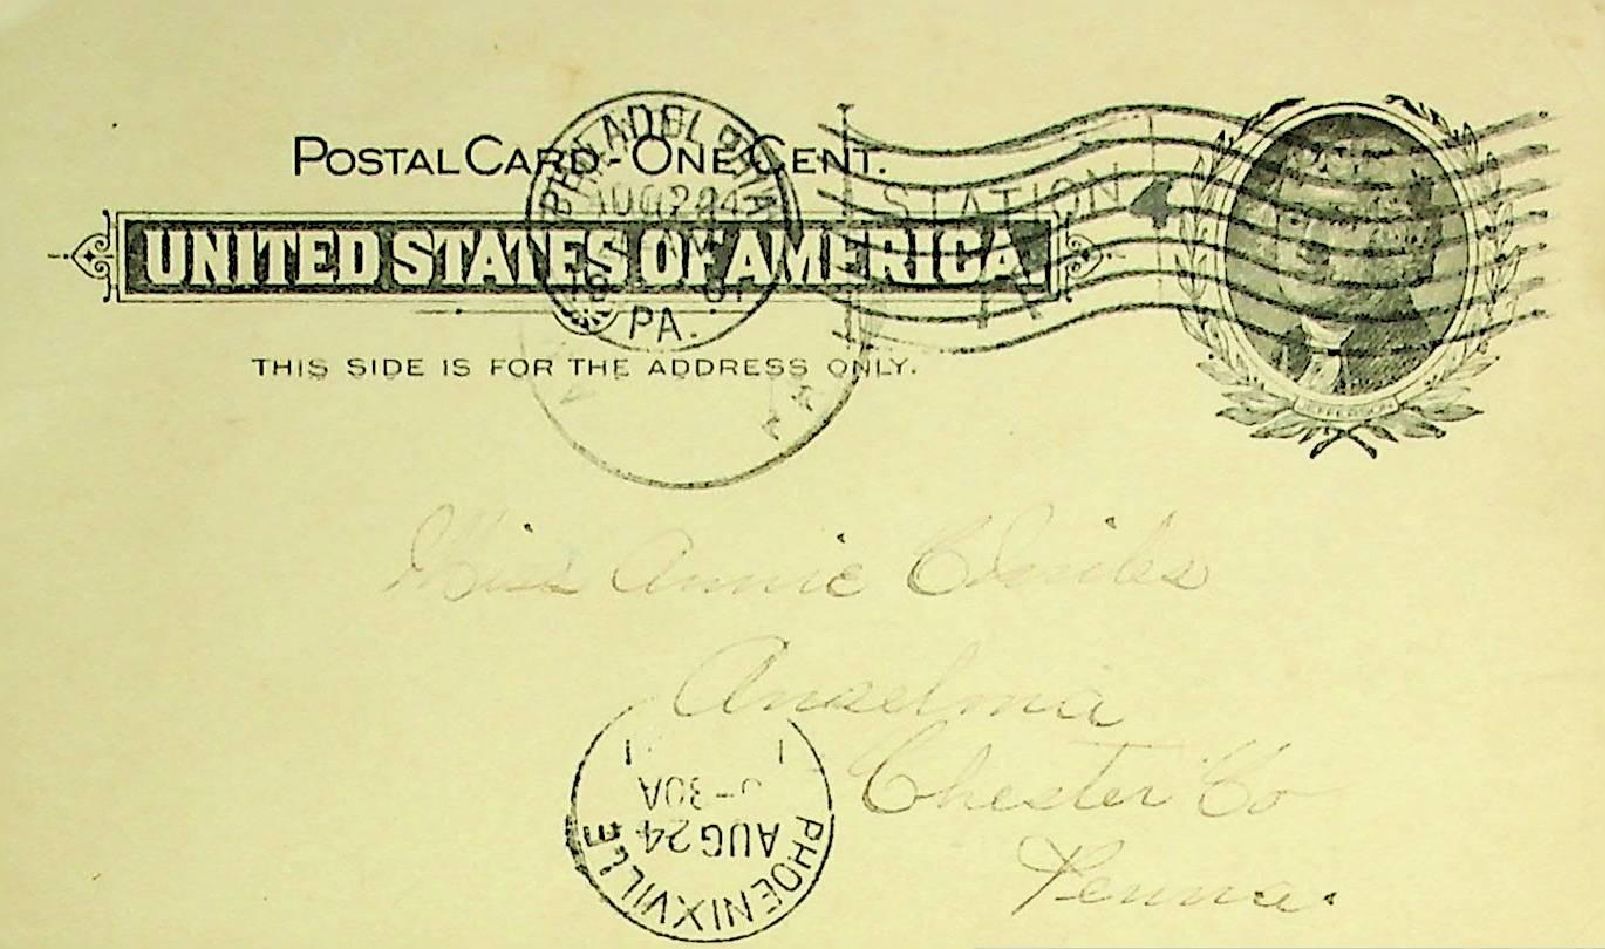 POSTAL CARD - ONE CENT.
UNITED STATES OF AMERICA
THIS SIDE IS FOR THE ADDRESS ONLY.
PHILADELPHIA
AUG 24
PA.
STATION
JEFFERSON
Miss Annie
Anselma
Chester Co
Penna.
PHOENIXVILLE
AUG 24
30A